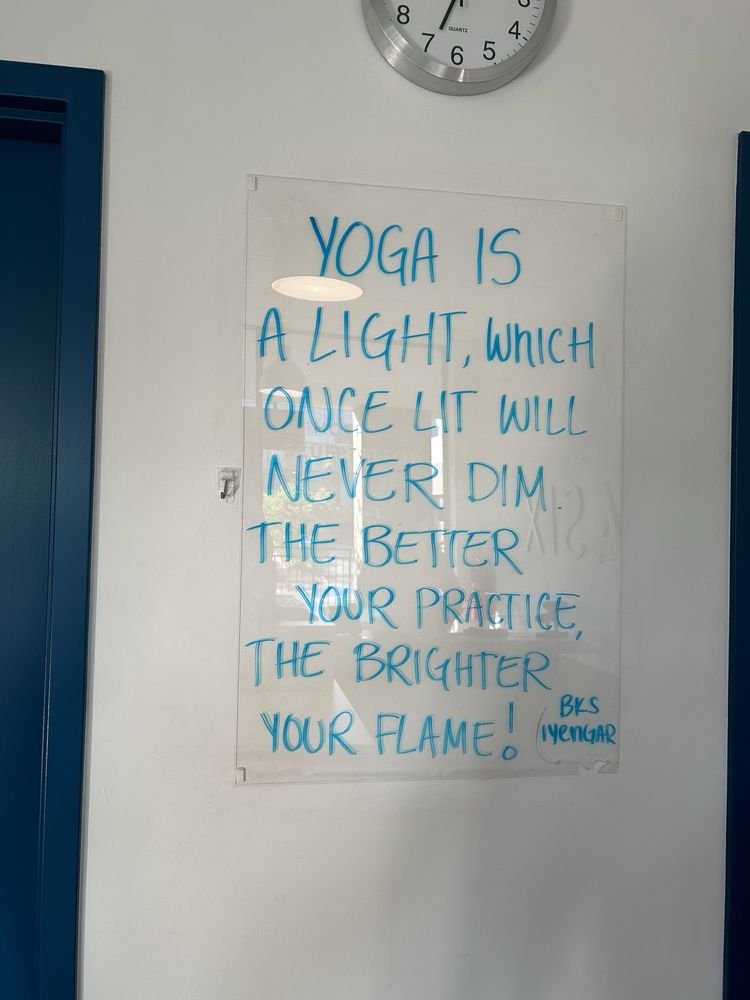 8
7
6
5
4
QUARTZ
YOGA IS
A LIGHT, WHICH
ONCE LIT WILL
NEVER DIM.
THE BETTER
YOUR PRACTICE,
THE BRIGHTER
YOUR FLAME!
BKS
IYENGAR